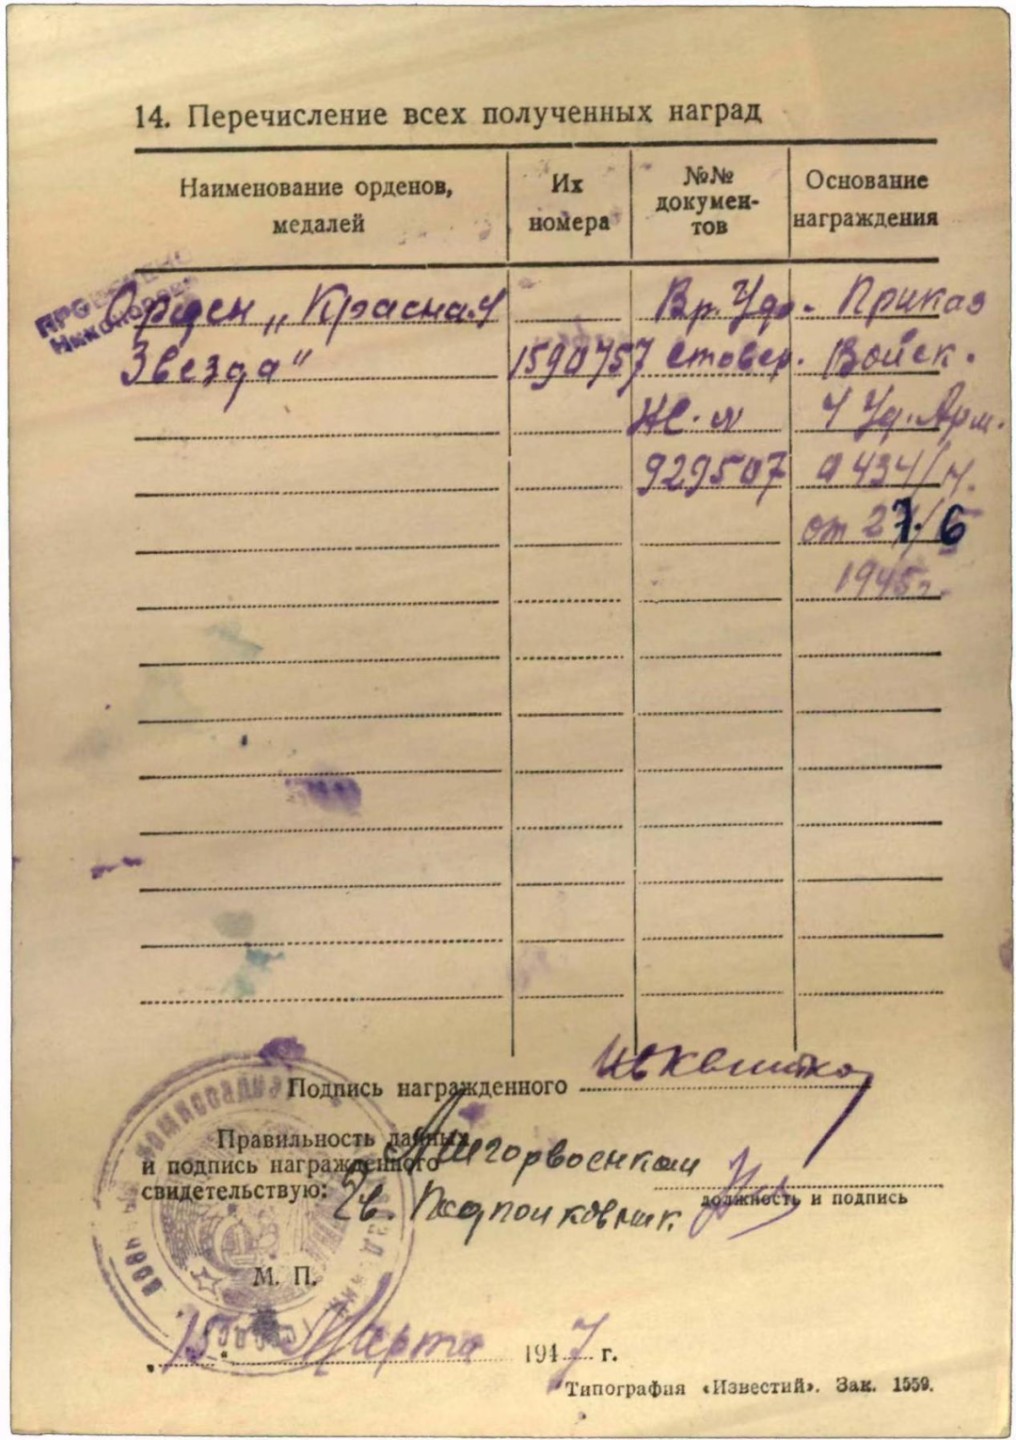 14. Перечисление всех полученных наград
Наименование орденов, медалей
Их номера
№№ докумен-тов
Основание награждения
Орден „Красная Вр. Удо- Приказ
Звезда" 1590757 стовер. Войск.
4 Уд. Арм.
929507 0434/н.
от 27.6
1945г.
Подпись награжденного
Правильность данных
и подпись награжденного
свидетельствую:
Горвоенком
Гв. Подполковник
должность и подпись
М. П.
„15" Марта 1947 г.
Типография «Известий». Зак. 1559.